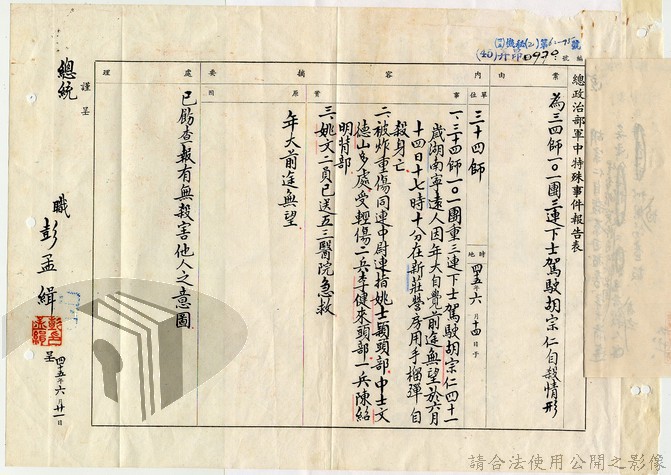 總政治部軍中特殊事件報告表
案由
為三四師一〇一團三連下士駕駛胡宗仁自殺情形
單位
三十四師
時地
四五年六月十四日于
事實內容摘要
一、三十四師一〇一團重三連下士駕駛胡宗仁四十一
歲湖南寧遠人因年大自覺前途無望於六月
十四日十七時十分在新莊營房用手榴彈自
殺身亡
二、被炸重傷同連中尉連指姚士穎頭部、中士文
德山多處受輕傷二兵李健來頭部一兵陳紹
明背部
三、姚文二員已送五三醫院急救
原因
年大前途無望
處理
已飭查報有無殺害他人之意圖
謹呈
總統
職彭孟緝呈
四十五年六月廿一日
編號
(40)
0970
號
請合法使用公開之影像